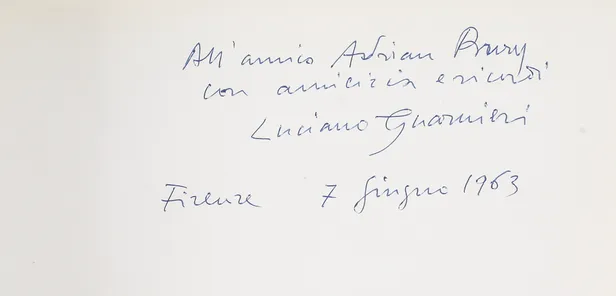 All'amico Adrian Bury
con amicizia e ricordi
Luciano Guarnieri
Firenze 7 Giugno 1963